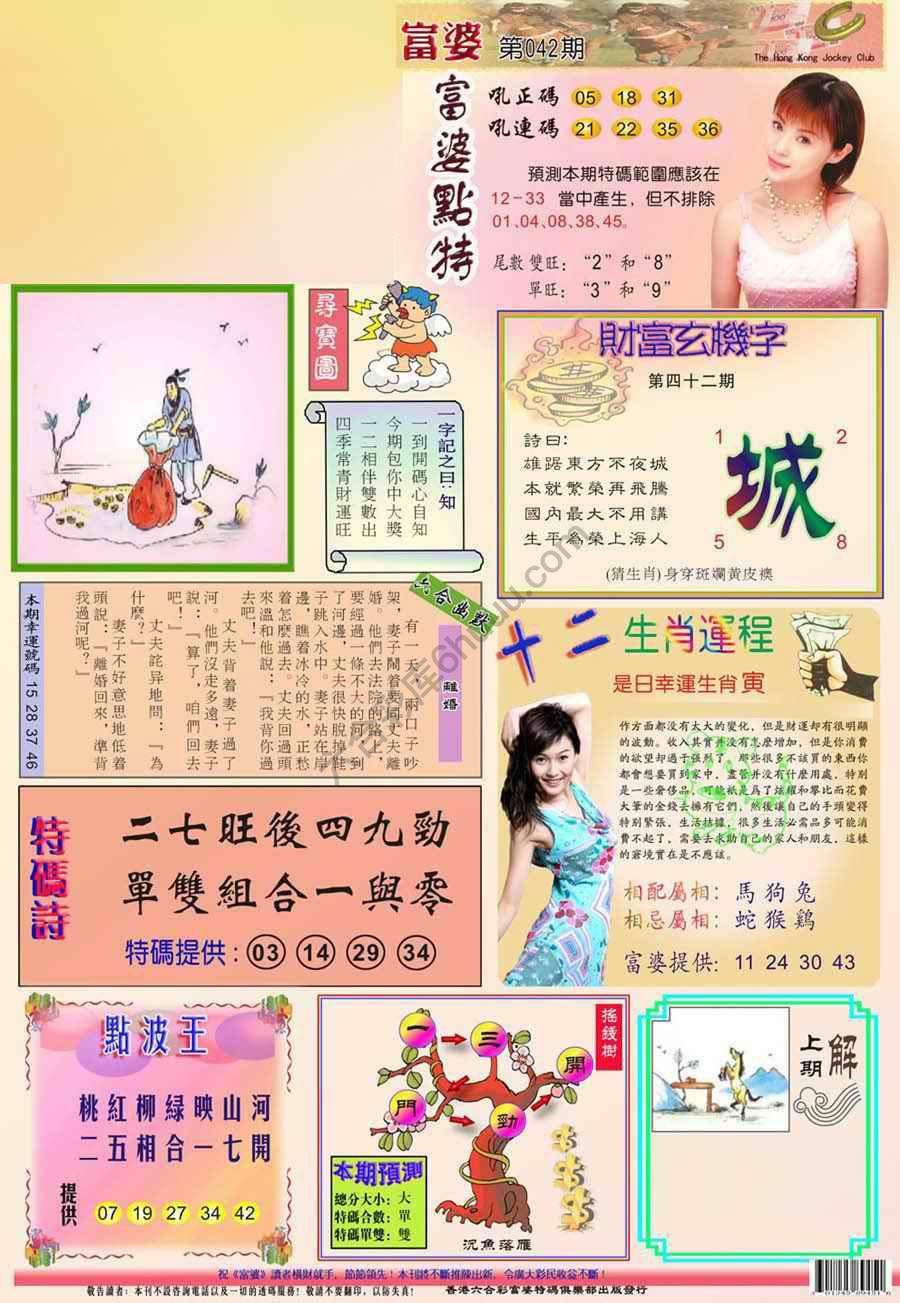 富婆 第042期
The Hong Kong Jockey Club
富婆點特
吼正碼 05 18 31
吼連碼 21 22 35 36
預測本期特碼範圍應該在
12-33 當中產生，但不排除
01、04、08、38、45。
尾數雙旺：“2”和“8”
單旺：“3”和“9”
尋寶圖
一字記之曰：知
一到開碼心自知
今期包你中大獎
一二相伴雙數出
四季常青財運旺
財富玄機字
第四十二期
詩曰：
雄踞東方不夜城
本就繁榮再飛騰
國內最大不用講
生平為榮上海人
1 2
城
5 8
(猜生肖)身穿斑斕黃皮襖
六合幽默
離婚
有一天，兩口子吵
架，妻子鬧着要同丈夫離
婚。他們去法院的路上
要經過一條不大的河，到
了河邊，丈夫很快脫掉鞋
子跳入水中。妻子站在岸
邊，瞧着冰冷的水，正愁
着怎麼過去。丈夫回過頭
來溫和地說：『我背你過
去吧。』
丈夫背着妻子過了
河。他們沒走多遠，妻子
說：『算了，咱們回去
吧！』
丈夫詫异地問：『為
什麼？』
妻子不好意思地低着
頭說：『離婚回來，準背
我過河呢？』
本期幸運號碼 15 28 37 46
十二生肖運程
是日幸運生肖寅
作方面都沒有太大的變化，但是財運却有很明顯
的波動。收入其實并没有怎麽增加，但是你消費
的欲望却過于强烈了，那些很多不該買的東西你
都會想要買到家中，盡管并没有什麽用處，特别
是一些奢侈品，可能衹是爲了炫耀和攀比而花費
大筆的金錢去擁有它們，然後讓自己的手頭變得
特别緊張、生活拮據，很多生活必需品多可能消
費不起了，需要去求助自己的家人和朋友，這樣
的窘境實在是不應該。
相配屬相：馬 狗 兔
相忌屬相：蛇 猴 鷄
富婆提供：11 24 30 43
特碼詩
二七旺後四九勁
單雙組合一與零
特碼提供：03 14 29 34
點波王
桃紅柳綠映山河
二五相合一七開
提供 07 19 27 34 42
搖錢樹
一 三
開
門 勁
本期預測
總分大小：大
特碼合數：單
特碼單雙：雙
沉魚落雁
上期解
祝《富婆》讀者橫財就手，節節領先！本刊將不斷推陳出新，令廣大彩民收益不斷！
敬告讀者：本刊不設咨詢電話以及一切的透碼服務！敬請不要翻印，以防失真！ 香港六合彩富婆特碼俱樂部出版發行